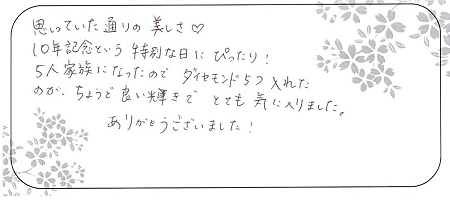 思っていた通りの美しさ♡
10年記念という特別な日にぴったり!
5人家族になったのでダイヤモンド5つ入れた
のが、ちょうど良い輝きでとても気に入りました。
ありがとうございました!